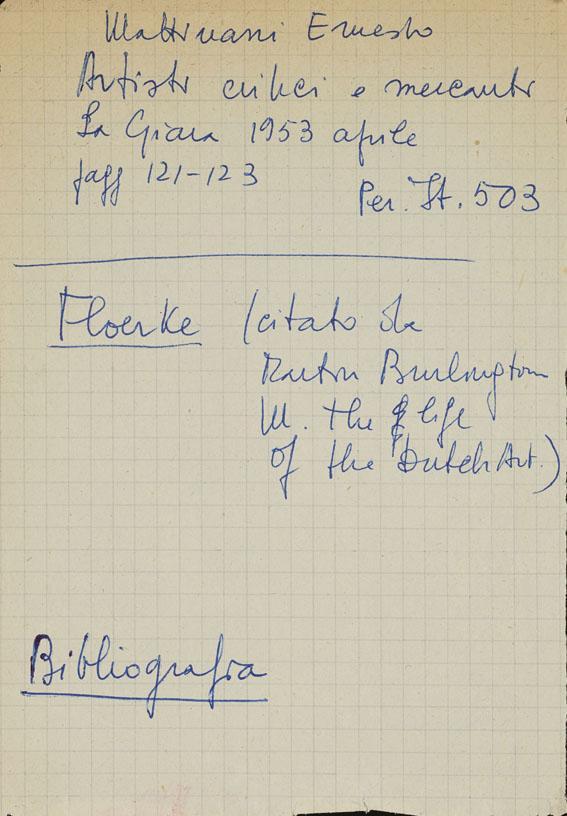 Ernesto
Artisti critici e mercanti
La Giara 1953 aprile
pagg 121-123
Per. It. 503
Floerke (citato da
Martin Burlington
M. the life
of the Dutch Art.)
Bibliografia